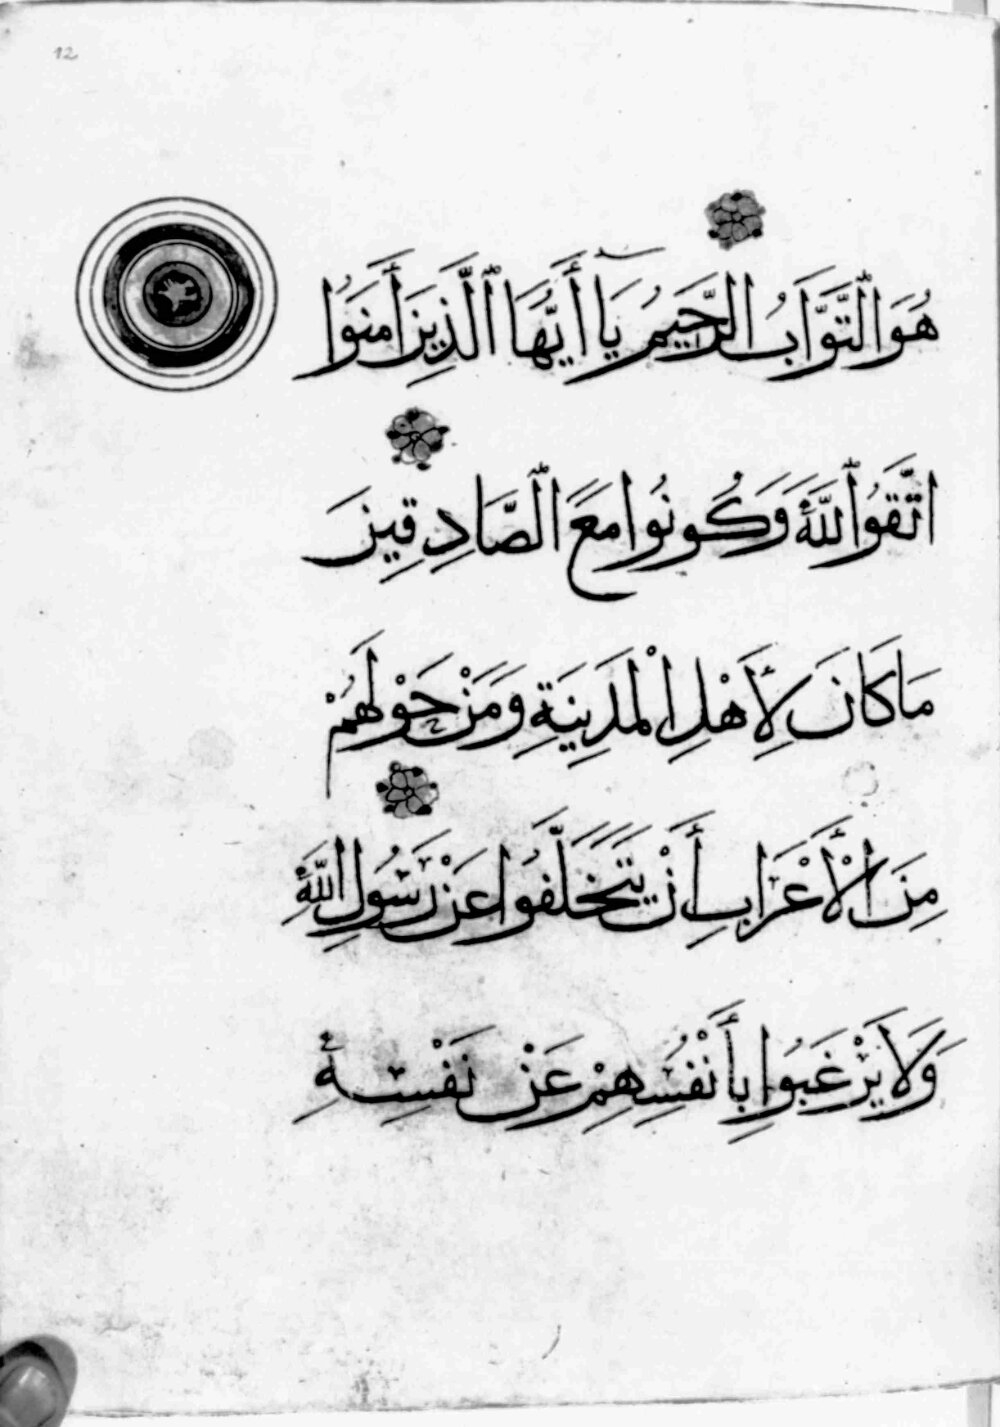 12
هُوَ التَّوَّابُ الرَّحِيمُ يَا أَيُّهَا الَّذِينَ أَمَنُوا
اتَّقُوا اللَّهَ وَكُونُوا مَعَ الصَّادِقِينَ
مَا كَانَ لِأَهْلِ الْمَدِينَةِ وَمَنْ حَوْلَهُمْ
مِنَ الْأَعْرَابِ أَنْ يَتَخَلَّفُوا عَنْ رَسُولِ اللَّهِ
وَلَا يَرْغَبُوا بِأَنْفُسِهِمْ عَنْ نَفْسِهِ